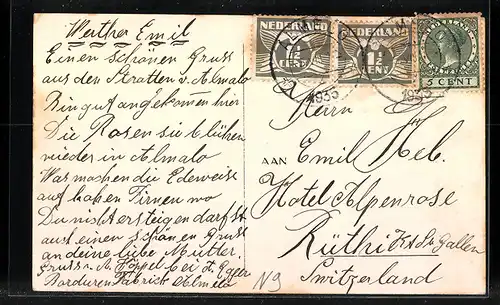 Werther Emil
Einen schönen Gruss
aus den Stratten v. Almalo
Bin gut angekommen hier
Die Rosen sie blühen
wieder in Almalo
Was machen die Edeweise
auf hohen Firnen wo
Du nist ersteigen darfst
auch einen schönen Gruss
an deine liebe Mutter.
Gruss v. M. Töppel bei d. Egler
Borduren Fabrick Almelo
NEDERLAND
1½ CENT
NEDERLAND
1½ CENT
5 CENT
1935
1935
Herrn
AAN
Emil Heb.
Hotel Alpenrose
Rüthi Kt. St. Gallen
Switzerland
N9